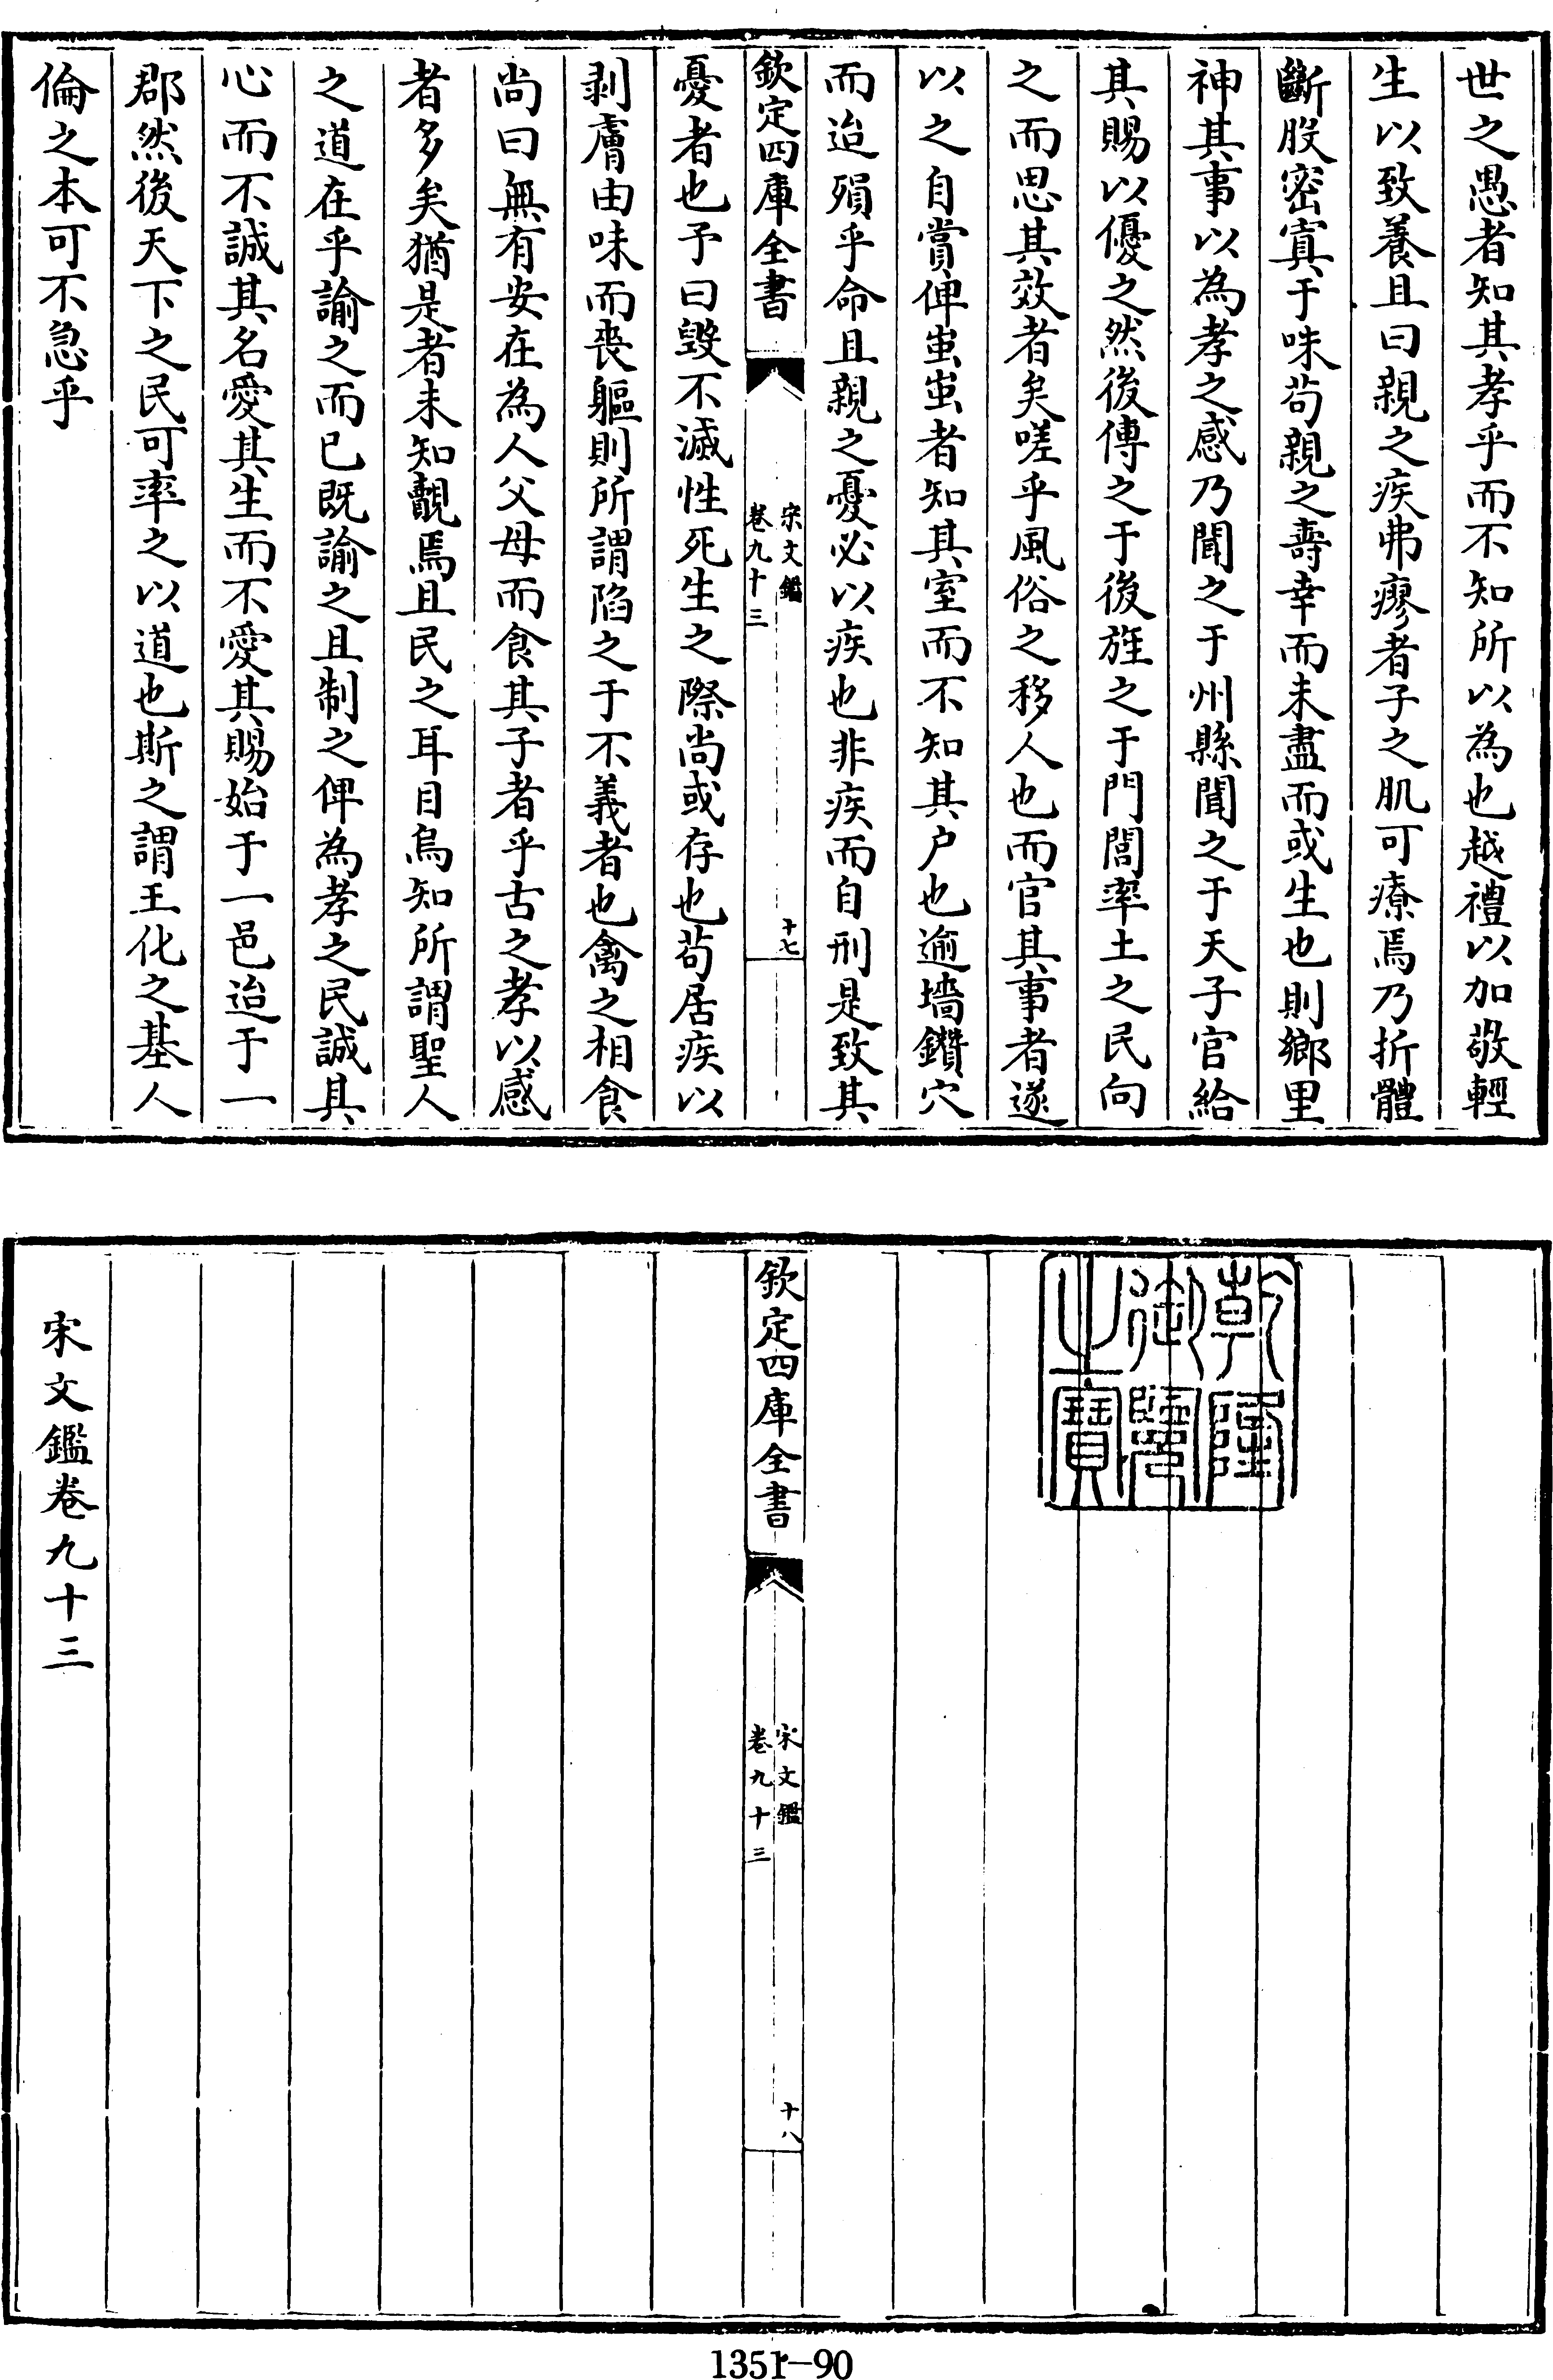 世之愚者知其孝乎而不知所以為也越禮以加敬輕
生以致養且曰親之疾弗瘳者子之肌可療焉乃折體
斷股密寘于味苟親之壽幸而未盡而或生也則鄉里
神其事以為孝之感乃聞之于州縣聞之于天子官給
其賜以優之然後傳之于後旌之于門閭率土之民向
之而思其效者矣嗟乎風俗之移人也而官其事者遂
以之自賞俾蚩蚩者知其室而不知其户也逾墻鑽穴
而迨殞乎命且親之憂必以疾也非疾而自刑是致其
欽定四庫全書
宋文鑑
卷九十三
十七
憂者也予曰毀不滅性死生之際尚或存也苟居疾以
剥膚由味而喪軀則所謂陷之于不義者也禽之相食
尚曰無有安在為人父母而食其子者乎古之孝以感
者多矣猶是者未知覩焉且民之耳目烏知所謂聖人
之道在乎諭之而已既諭之且制之俾為孝之民誠其
心而不誠其名愛其生而不愛其賜始于一邑迨于一
郡然後天下之民可率之以道也斯之謂王化之基人
倫之本可不急乎
乾隆
御覽
之寶
欽定四庫全書
宋文鑑
卷九十三
十八
宋文鑑卷九十三
1351-90